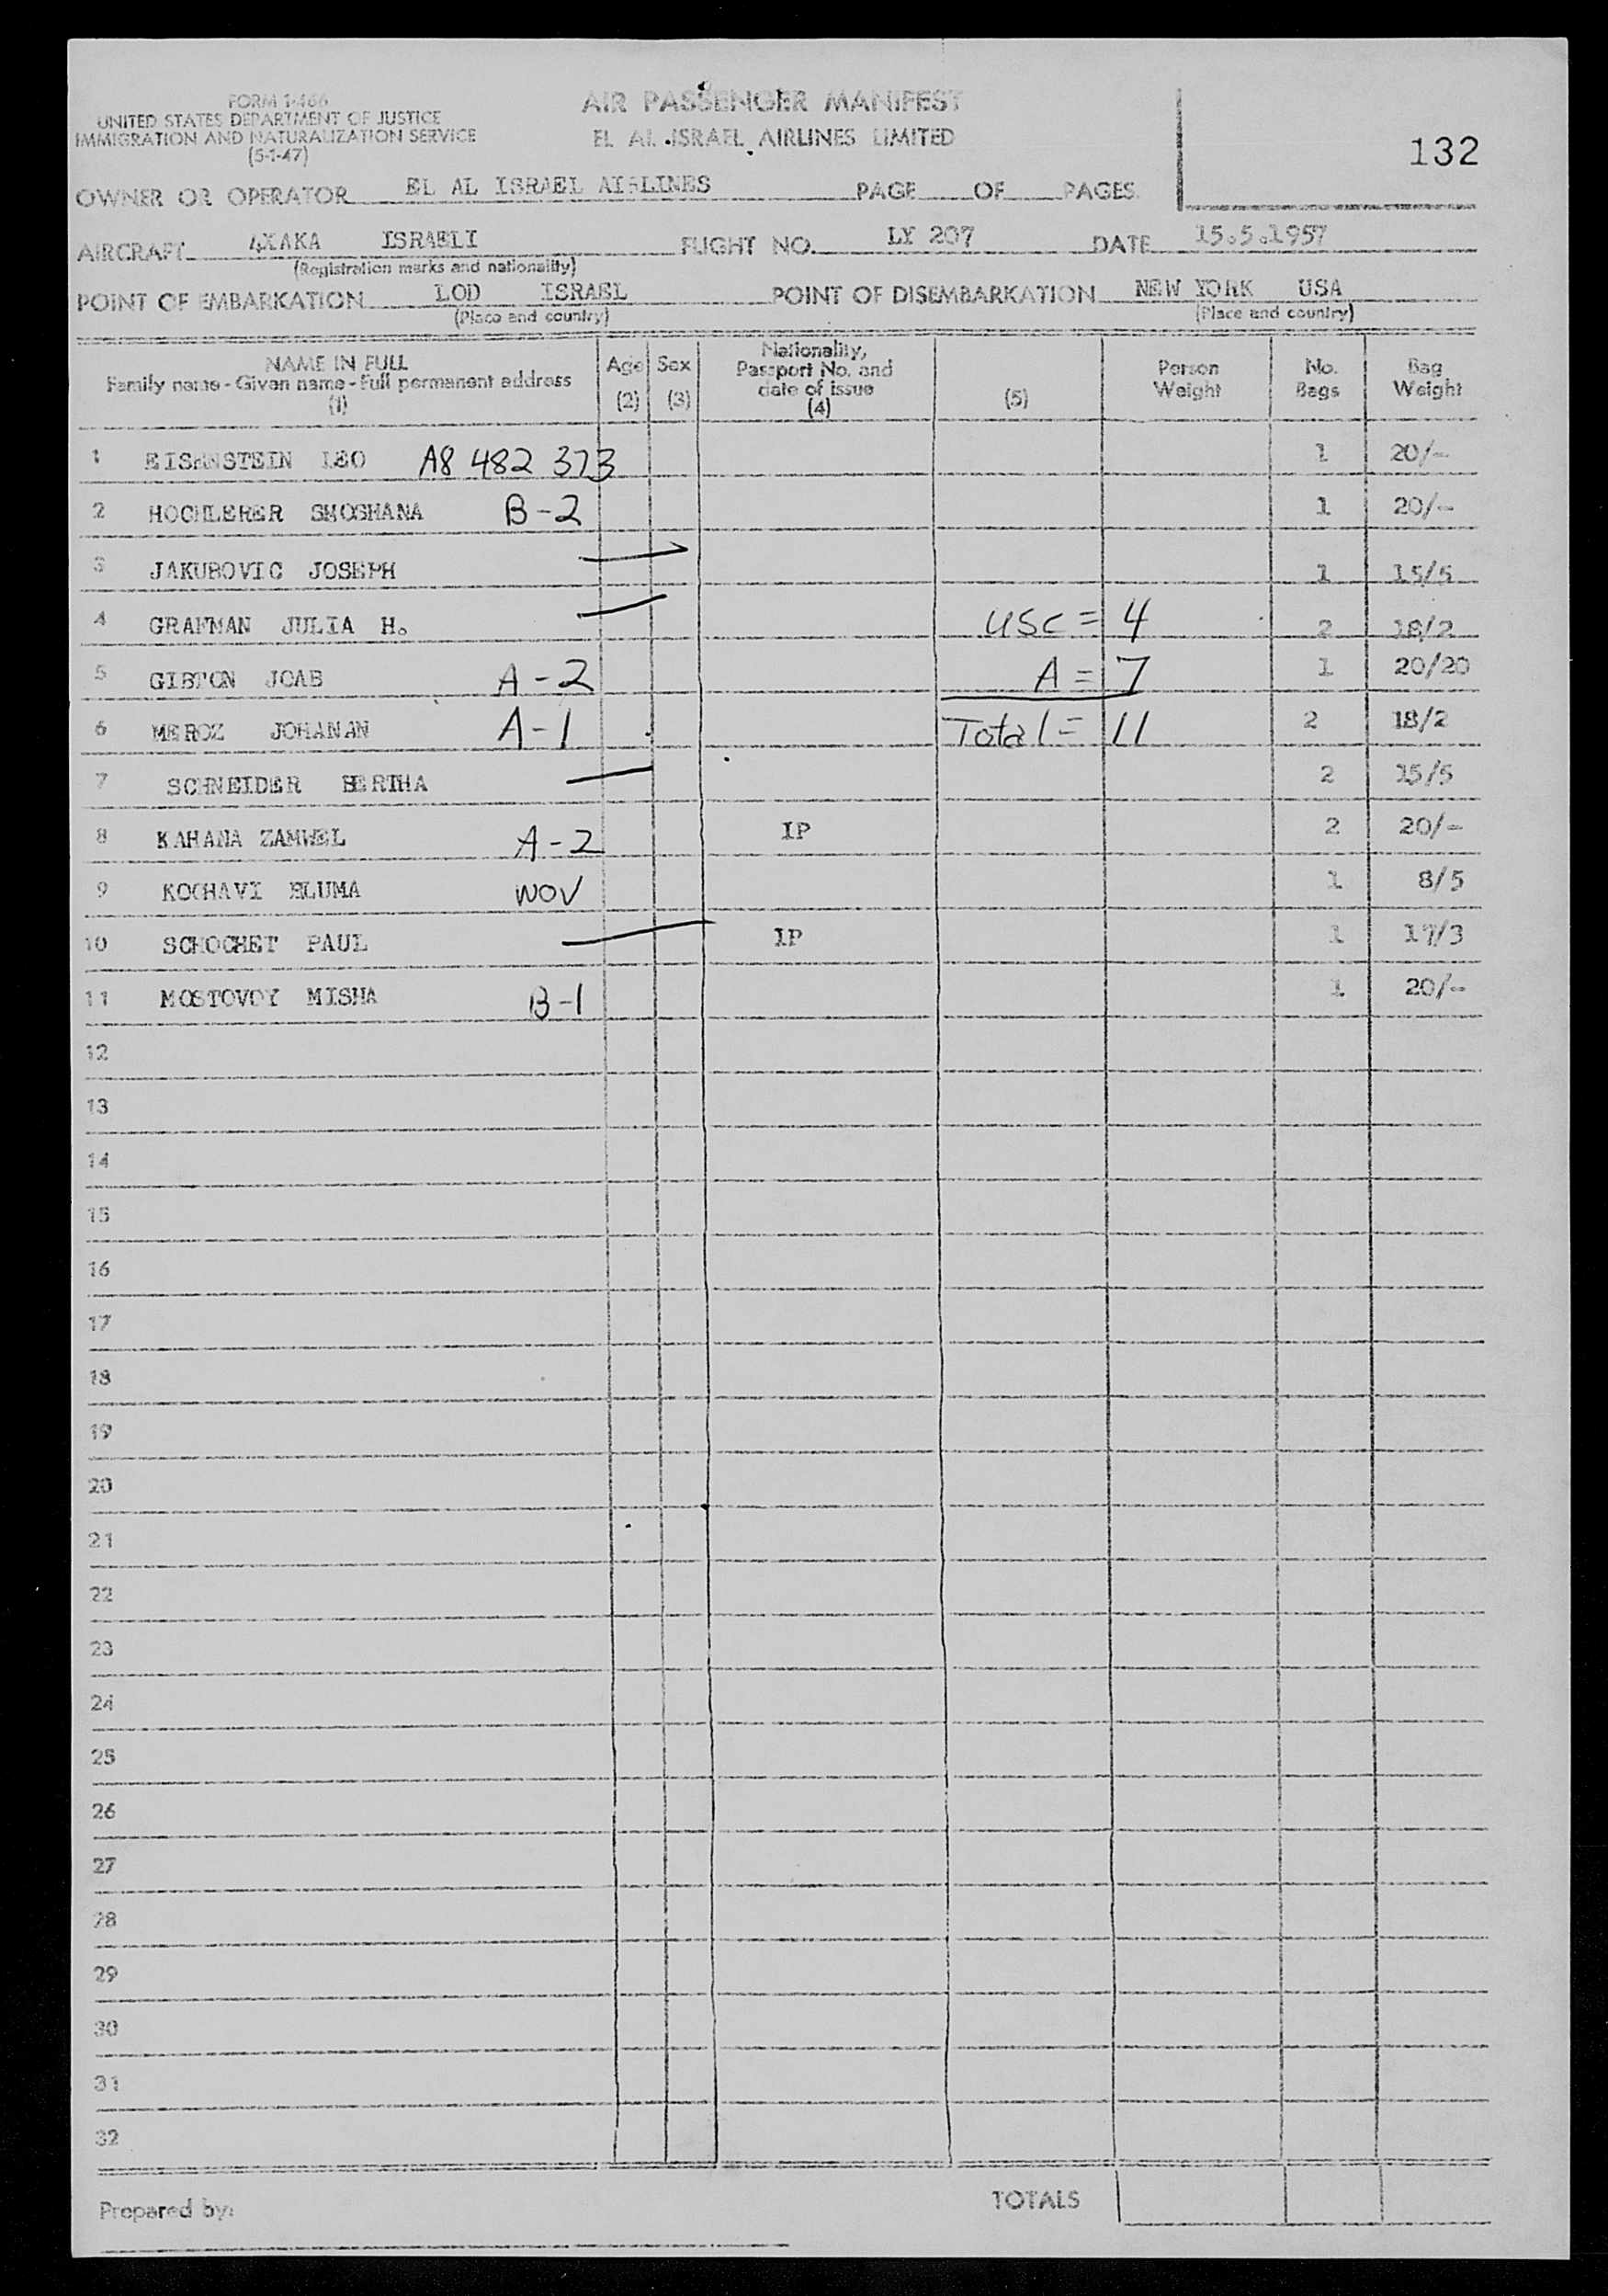 FORM I-466
UNITED STATES DEPARTMENT OF JUSTICE
IMMIGRATION AND NATURALIZATION SERVICE
(5-1-47)
AIR PASSENGER MANIFEST
EL AL ISRAEL AIRLINES LIMITED
132
OWNER OR OPERATOR EL AL ISRAEL AIRLINES PAGE OF PAGES
AIRCRAFT 4XAKA ISRAELI FLIGHT NO. LY 207 DATE 15.5.1957
(Registration marks and nationality)
POINT OF EMBARKATION LOD ISRAEL POINT OF DISEMBARKATION NEW YORK USA
(Place and country) (Place and country)
NAME IN FULL
Family name - Given name - Full permanent address
(1)
Age
(2)
Sex
(3)
Nationality,
Passport No. and
date of issue
(4)
(5)
Person
Weight
No.
Bags
Bag
Weight
1 EISENSTEIN LEO A8 482 373 1 20/-
2 HOCHLERER SHOSHANA B-2 1 20/-
3 JAKUBOVIC JOSEPH 1 15/5
4 GRAFMAN JULIA H. USC = 4 2 18/2
5 GIBTON JOAB A-2 A = 7 1 20/20
6 MEROZ JOHANAN A-1 Total = 11 2 18/2
7 SCHNEIDER BERTHA 2 15/5
8 KAHANA ZAMWEL A-2 IP 2 20/-
9 KOCHAVI ELUMA WOV 1 8/5
10 SCHOCHET PAUL IP 1 17/3
11 MOSTOVOY MISHA B-1 1 20/-
12
13
14
15
16
17
18
19
20
21
22
23
24
25
26
27
28
29
30
31
32
Prepared by: TOTALS